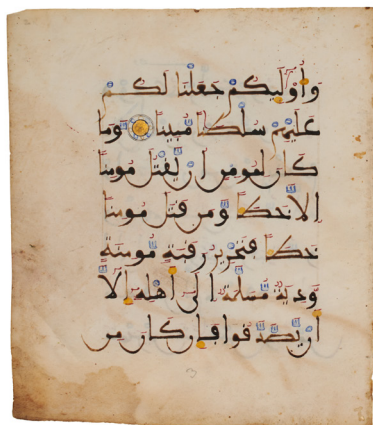 وَأُوْلَٰئِكُمْ جَعَلْنَا لَكُمْ
عَلَيْهِمْ سُلْطَٰنًا مُبِينًا وَمَا
كَانَ لِمُومِنٍ اَنْ يَقْتُلَ مُومِنًا
اِلَّا خَطَـًٔا وَمَن قَتَلَ مُومِنًا
خَطَـًٔا فَتَحْرِيرُ رَقَبَةٍ مُومِنَةٍ
وَدِيَةٌ مُسَلَّمَةٌ اِلَىٰ أَهْلِهِ اِلَّا
أَنْ يَصَّدَّقُوا فَإِن كَانَ مِن
3